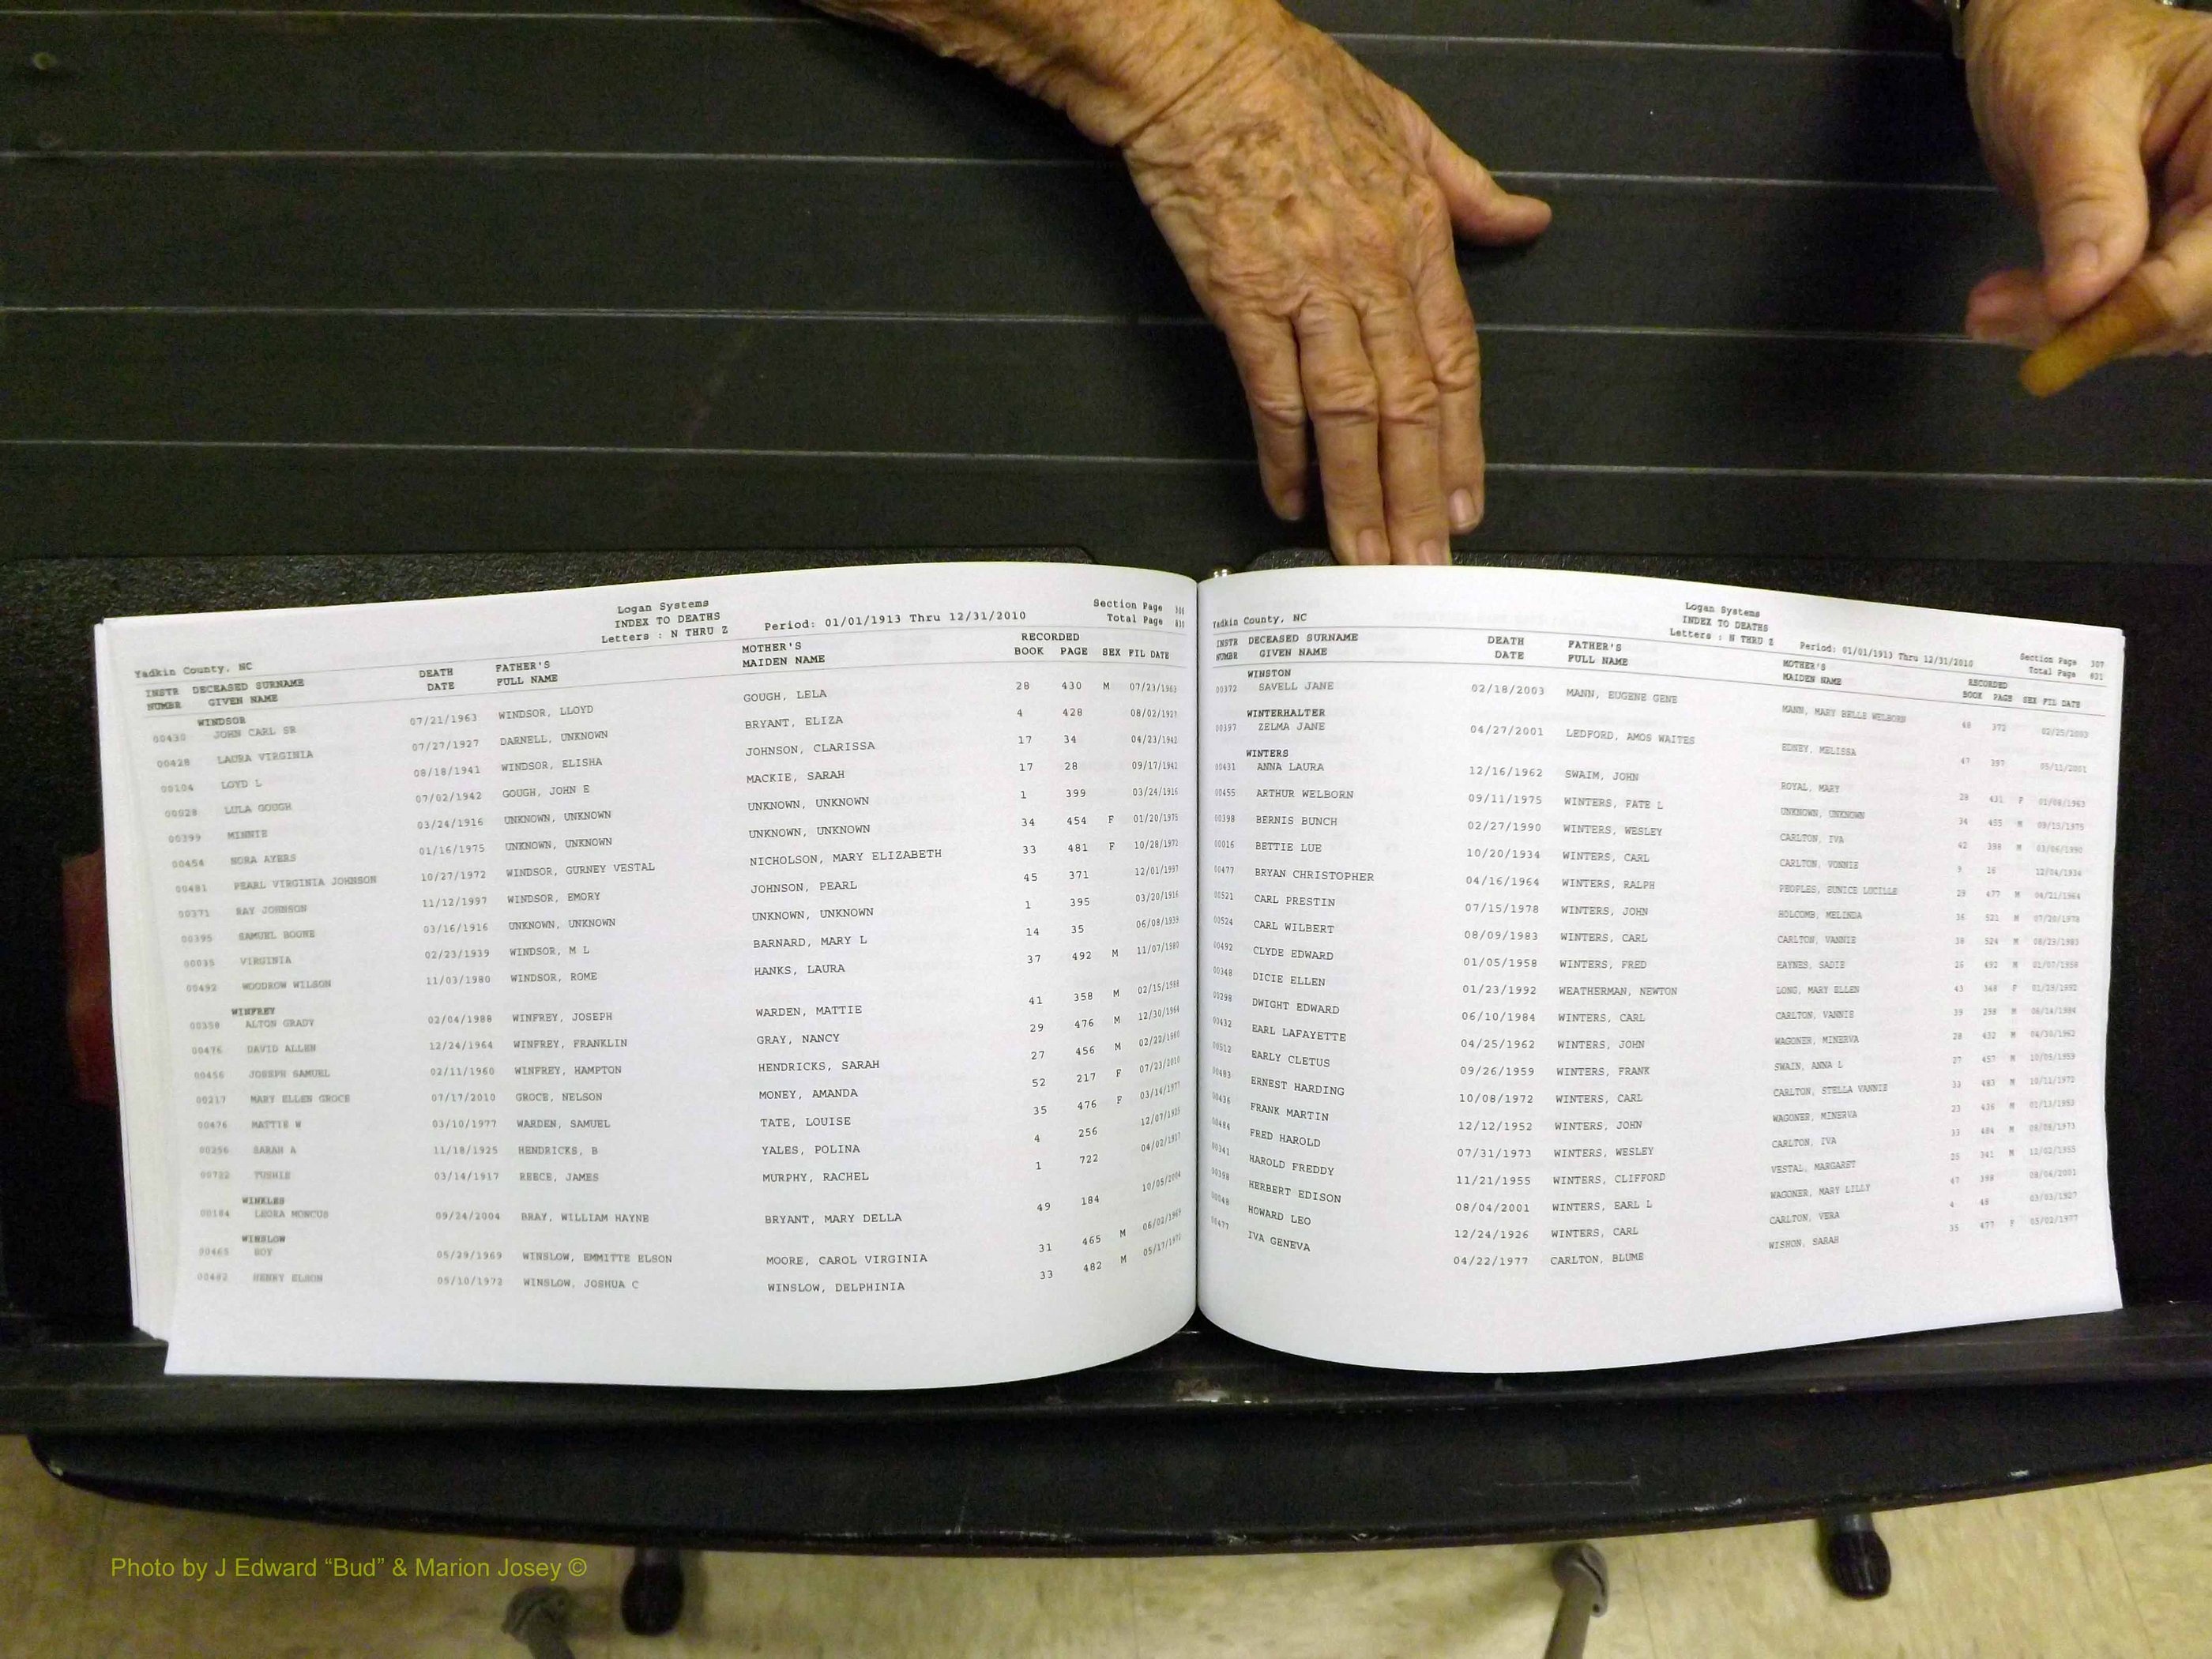 Logan Systems
INDEX TO DEATHS
Letters : N THRU Z Period: 01/01/1913 Thru 12/31/2010
Section Page
Total Page
Yadkin County, NC
INSTR NUMBR DECEASED SURNAME GIVEN NAME DEATH DATE FATHER'S FULL NAME MOTHER'S MAIDEN NAME RECORDED BOOK PAGE SEX FIL DATE
WINDSOR
00430 JOHN CARL SR 07/21/1963 WINDSOR, LLOYD GOUGH, LELA 28 430 M 07/23/1963
00428 LAURA VIRGINIA 07/27/1927 DARNELL, UNKNOWN BRYANT, ELIZA 4 428 08/02/1927
00104 LOYD L 08/18/1941 WINDSOR, ELISHA JOHNSON, CLARISSA 17 34 04/23/1942
00028 LULA GOUGH 07/02/1942 GOUGH, JOHN E MACKIE, SARAH 17 28 09/17/1942
00399 MINNIE 03/24/1916 UNKNOWN, UNKNOWN UNKNOWN, UNKNOWN 1 399 03/24/1916
00454 NORA AYERS 01/16/1975 UNKNOWN, UNKNOWN UNKNOWN, UNKNOWN 34 454 F 01/20/1975
00481 PEARL VIRGINIA JOHNSON 10/27/1972 WINDSOR, GURNEY VESTAL NICHOLSON, MARY ELIZABETH 33 481 F 10/28/1972
00371 RAY JOHNSON 11/12/1997 WINDSOR, EMORY JOHNSON, PEARL 45 371 12/01/1997
00395 SAMUEL BOONE 03/16/1916 UNKNOWN, UNKNOWN UNKNOWN, UNKNOWN 1 395 03/20/1916
00035 VIRGINIA 02/23/1939 WINDSOR, M L BARNARD, MARY L 14 35 06/08/1939
00492 WOODROW WILSON 11/03/1980 WINDSOR, ROME HANKS, LAURA 37 492 M 11/07/1980
WINFREY
00358 ALTON GRADY 02/04/1988 WINFREY, JOSEPH WARDEN, MATTIE 41 358 M 02/15/1988
00476 DAVID ALLEN 12/24/1964 WINFREY, FRANKLIN GRAY, NANCY 29 476 M 12/30/1964
00456 JOSEPH SAMUEL 02/11/1960 WINFREY, HAMPTON HENDRICKS, SARAH 27 456 M 02/22/1960
00217 MARY ELLEN GROCE 07/17/2010 GROCE, NELSON MONEY, AMANDA 52 217 F 07/23/2010
00476 MATTIE W 03/10/1977 WARDEN, SAMUEL TATE, LOUISE 35 476 F 03/14/1977
00256 SARAH A 11/18/1925 HENDRICKS, B YALES, POLINA 4 256 12/07/1925
00722 TUSHIE 03/14/1917 REECE, JAMES MURPHY, RACHEL 1 722 04/02/1917
WINKLES
00184 LEORA MONCUS 09/24/2004 BRAY, WILLIAM HAYNE BRYANT, MARY DELLA 49 184 10/05/2004
WINSLOW
00465 BOY 05/29/1969 WINSLOW, EMMITTE ELSON MOORE, CAROL VIRGINIA 31 465 M 06/02/1969
00482 HENRY ELSON 05/10/1972 WINSLOW, JOSHUA C WINSLOW, DELPHINIA 33 482 M 05/17/1972
Logan Systems
INDEX TO DEATHS
Letters : N THRU Z Period: 01/01/1913 Thru 12/31/2010
Section Page 307
Total Page 831
Yadkin County, NC
INSTR NUMBR DECEASED SURNAME GIVEN NAME DEATH DATE FATHER'S FULL NAME MOTHER'S MAIDEN NAME RECORDED BOOK PAGE SEX FIL DATE
WINSTON
00372 SAVELL JANE 02/18/2003 MANN, EUGENE GENE MANN, MARY BELLE WELBORN 48 372 02/25/2003
WINTERHALTER
00397 ZELMA JANE 04/27/2001 LEDFORD, AMOS WAITES EDNEY, MELISSA 47 397 05/11/2001
WINTERS
00431 ANNA LAURA 12/16/1962 SWAIM, JOHN ROYAL, MARY 28 431 F 01/08/1963
00455 ARTHUR WELBORN 09/11/1975 WINTERS, FATE L UNKNOWN, UNKNOWN 34 455 M 09/15/1975
00398 BERNIS BUNCH 02/27/1990 WINTERS, WESLEY CARLTON, IVA 42 398 M 03/06/1990
00016 BETTIE LUE 10/20/1934 WINTERS, CARL CARLTON, VONNIE 9 16 12/04/1934
00477 BRYAN CHRISTOPHER 04/16/1964 WINTERS, RALPH PEOPLES, EUNICE LUCILLE 29 477 M 04/21/1964
00521 CARL PRESTIN 07/15/1978 WINTERS, JOHN HOLCOMB, MELINDA 36 521 M 07/20/1978
00524 CARL WILBERT 08/09/1983 WINTERS, CARL CARLTON, VANNIE 38 524 M 08/29/1983
00492 CLYDE EDWARD 01/05/1958 WINTERS, FRED HAYNES, SADIE 26 492 M 01/07/1958
00348 DICIE ELLEN 01/23/1992 WEATHERMAN, NEWTON LONG, MARY ELLEN 43 348 F 01/29/1992
00298 DWIGHT EDWARD 06/10/1984 WINTERS, CARL CARLTON, VANNIE 39 298 M 06/14/1984
00432 EARL LAFAYETTE 04/25/1962 WINTERS, JOHN WAGONER, MINERVA 28 432 M 04/30/1962
EARLY CLETUS 09/26/1959 WINTERS, FRANK SWAIN, ANNA L 27 457 M 10/05/1959
00483 ERNEST HARDING 10/08/1972 WINTERS, CARL CARLTON, STELLA VANNIE 33 483 M 10/11/1972
00436 FRANK MARTIN 12/12/1952 WINTERS, JOHN WAGONER, MINERVA 23 436 M 01/13/1953
00484 FRED HAROLD 07/31/1973 WINTERS, WESLEY CARLTON, IVA 33 484 M
00341 HAROLD FREDDY 11/21/1955 WINTERS, CLIFFORD VESTAL, MARGARET 25 341 M 12/02/1955
00398 HERBERT EDISON 08/04/2001 WINTERS, EARL L WAGONER, MARY LILLY 47 398
00048 HOWARD LEO 12/24/1926 WINTERS, CARL CARLTON, VERA 4 48 03/03/1927
00477 IVA GENEVA 04/22/1977 CARLTON, BLUME WISHON, SARAH 35 477 F 05/02/1977
Photo by J Edward “Bud” & Marion Josey ©